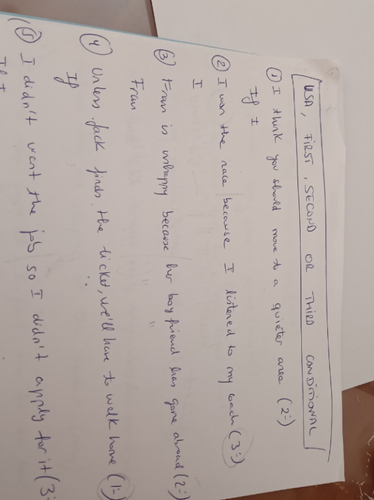 USA, FIRST, SECOND OR THIRD CONDITIONAL
① I think you should move to a quieter area (2:)
If I
② I won the race because I listened to my coach (3:)
I
③ Fran is unhappy because her boyfriend has gone abroad (2:)
Fran
④ Unless Jack finds the ticket, we'll have to walk home (1:)
If
⑤ I didn't want the job so I didn't apply for it (3:
If I